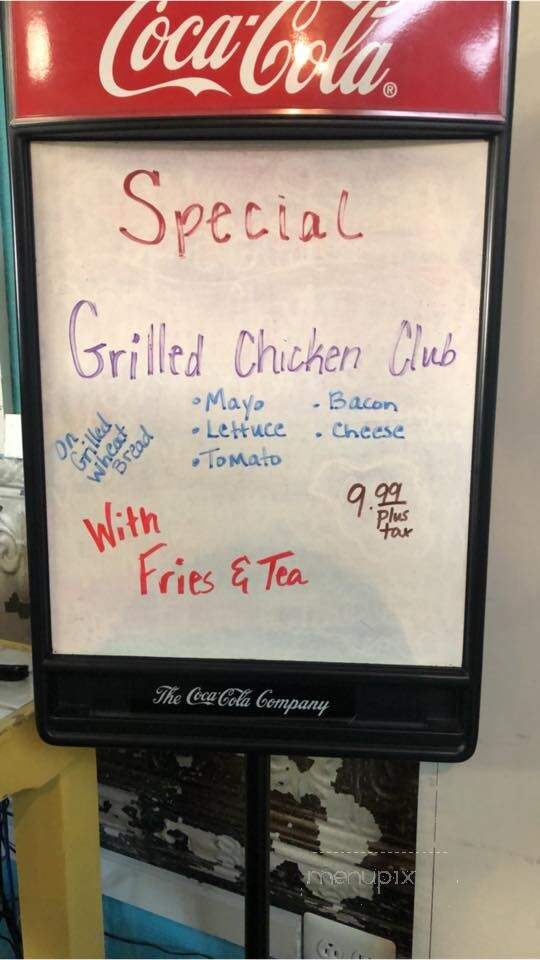 Coca-Cola®
Special
Grilled Chicken Club
• Mayo • Bacon
• Lettuce • Cheese
• Tomato
On
Grilled
Wheat
Bread
9.99
Plus
tax
With
Fries & Tea
The Coca-Cola Company
menupix